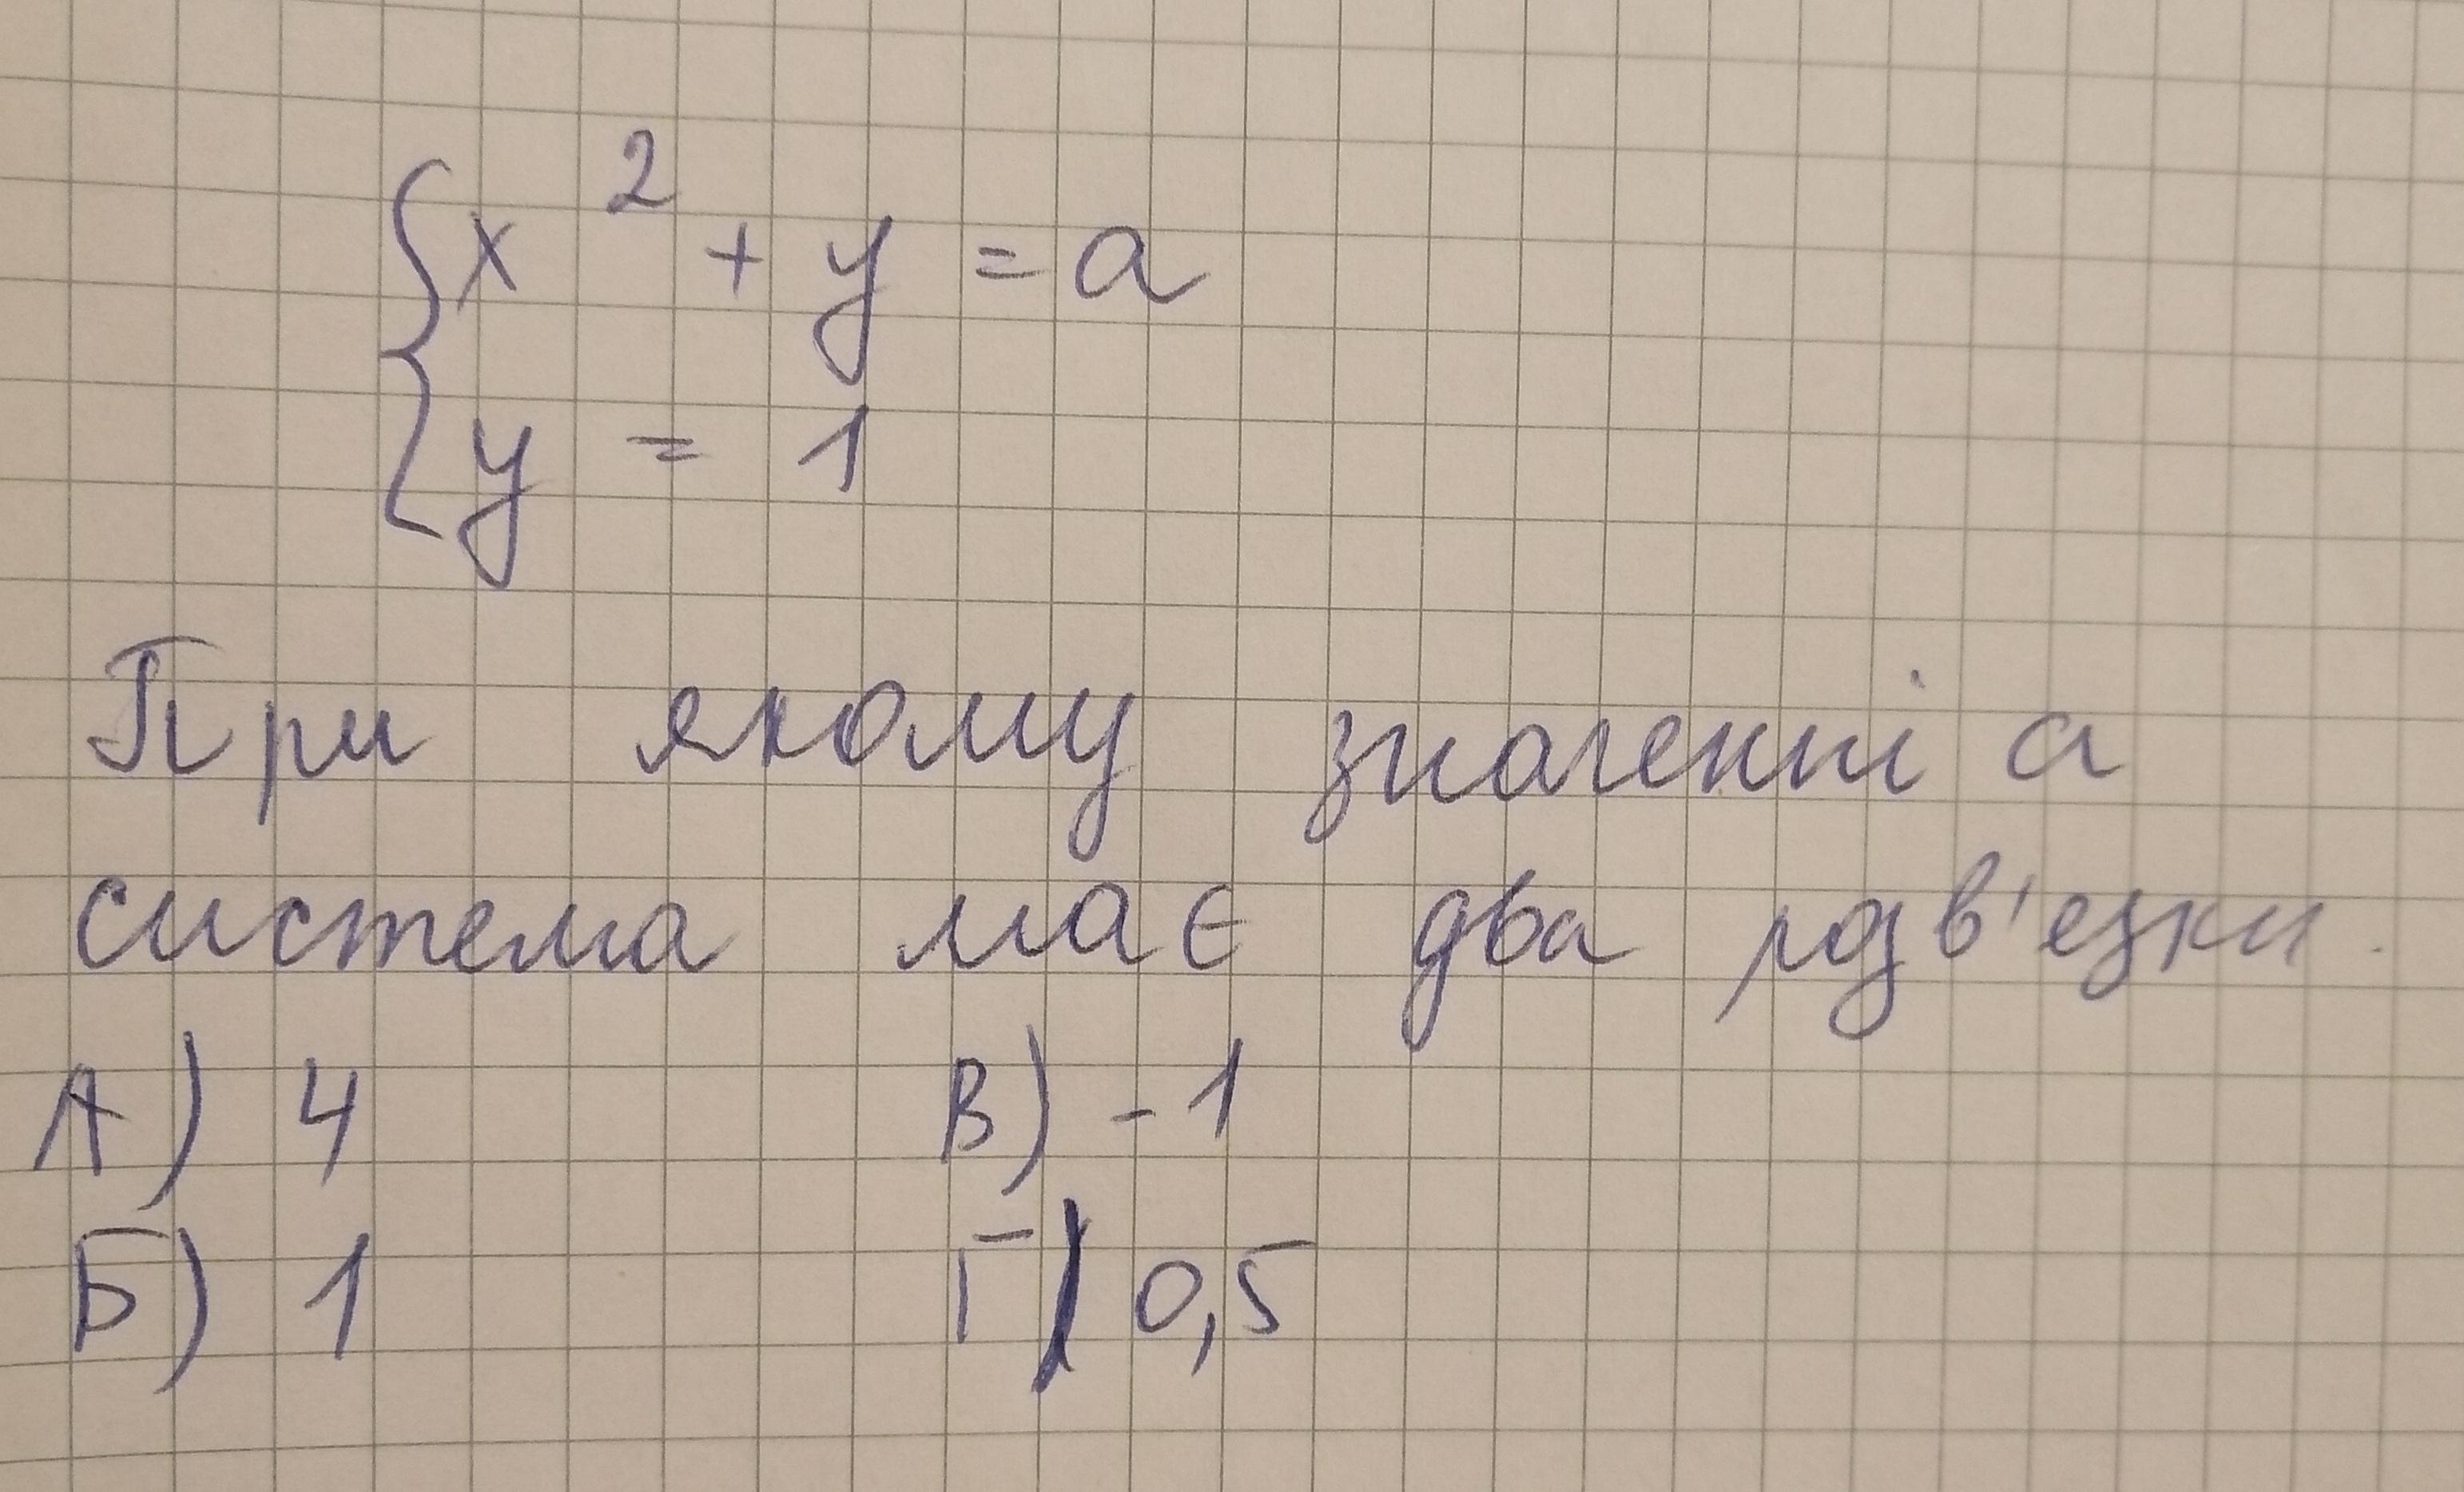 {x² + y = a
{y = 1
При якому значенні a
система має два розв'езки.
А) 4 В) -1
Б) 1 Г) 0,5